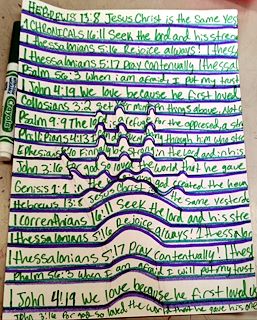 HEBREWS 13:8 Jesus Christ is the same Yes
1 CHRONICALS 16:11 Seek the lord and his stren
1 thessalonians 5:16 Rejoice always! 1 thess
1 thessalonians 5:17 Pray contenually! 1 thessal
Psalm 56:3 when I am afraid, I put my trust
1 John 4:19 We love because he first loved
Collosians 3:2 Set your minds things above, Not
Psalm 9:9 The lord is a refuge for the oppressed, a str
Philipians 4:13 I can do all through him who stre
Ephesians 6:10 Finally be strong in the lord and in his
John 3:16 for god so loved the world that he gave
Geniss 1:1 in the beginning god created the heav
Hebrews 13:8 Jesus Christ is the same yesterda
1 corrinthians 16:11 Seek the lord and his stre
1 thessalonians 5:16 Rejoice always! 1 thes
1 thessalonians 5:17 Pray contentually! 1 thess
Psalm 56:3 when I am afraid I will put my trust
1 John 4:19 We love because he first loved us
John 3:16 for god so loved the world that he gave his one